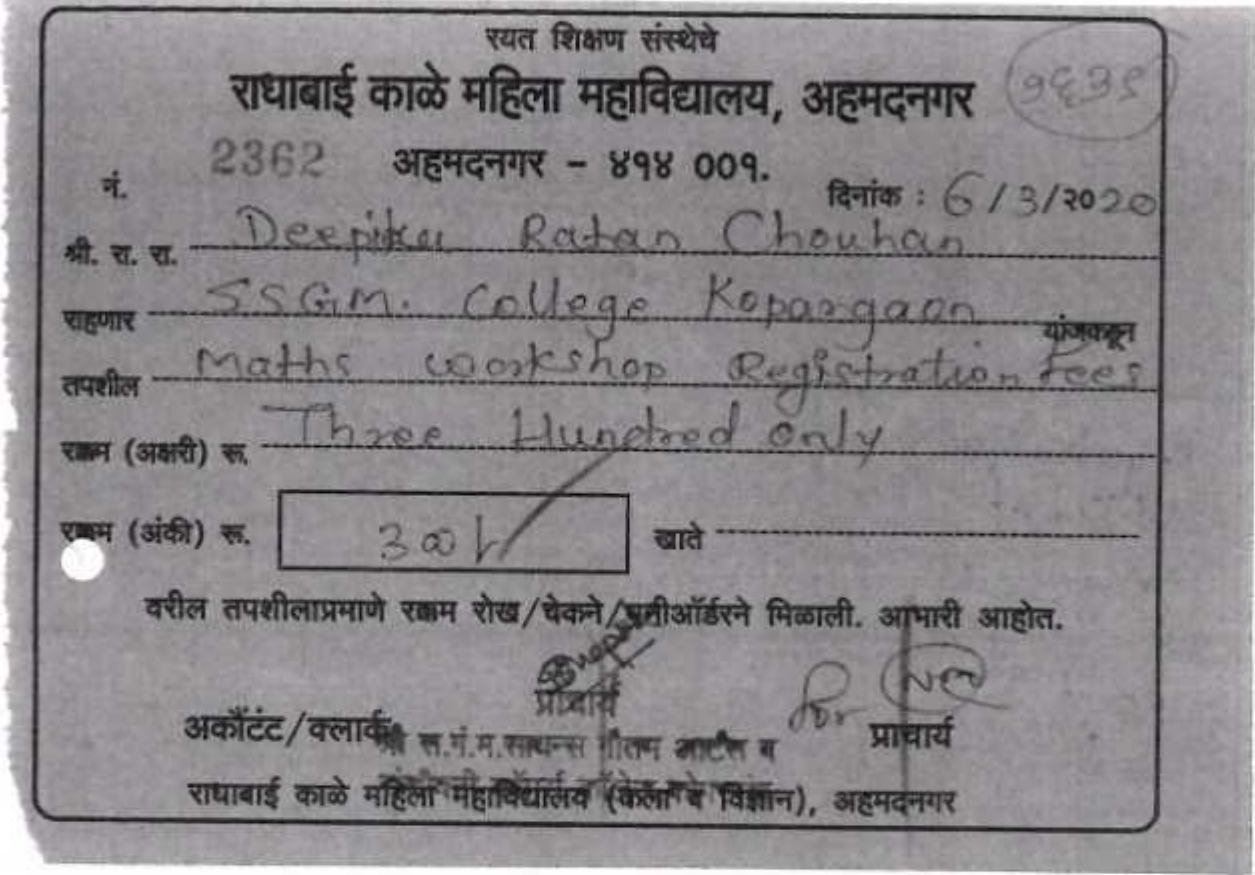 रयत शिक्षण संस्थेचे
राधाबाई काळे महिला महाविद्यालय, अहमदनगर
१६३९
2362 अहमदनगर - ४१४ ००१.
नं. दिनांक : 6/3/२०20
श्री. रा. रा. Deepika Ratan Chouhan
राहणार S.S.G.M. College Kopargaon यांजकडून
तपशील Maths workshop Registration Fees
रक्कम (अक्षरी) रू. Three Hundred Only
रक्कम (अंकी) रू. 300/- खाते
वरील तपशीलाप्रमाणे रक्कम रोख/चेकने/मनीऑर्डरने मिळाली. आभारी आहोत.
प्राचार्य
for
अकौंटंट/क्लार्क प्राचार्य
श्री स.गं.म.सायन्स गौतम आर्टस व
राधाबाई काळे महिला महाविद्यालय (कला व विज्ञान), अहमदनगर